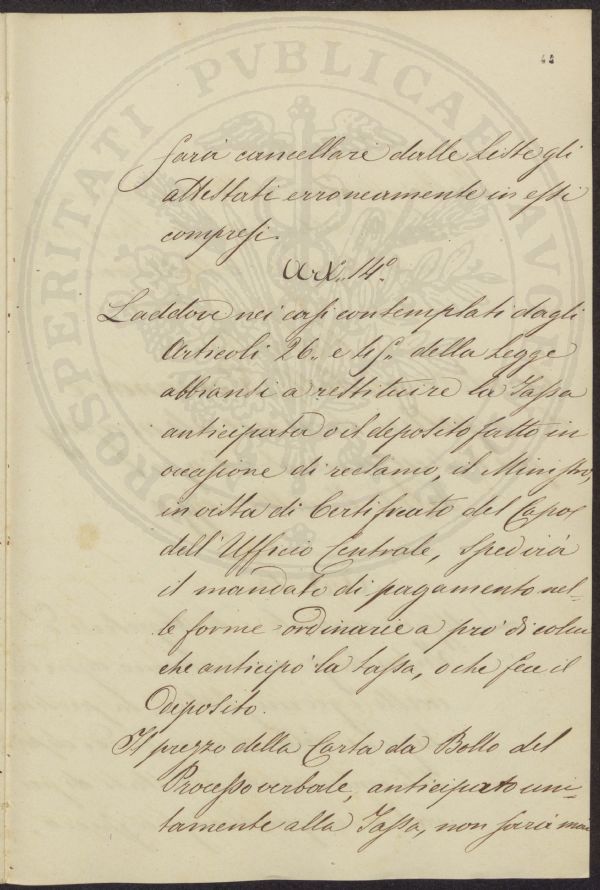 PROSPERITATI PVBLICAE AVG
farà cancellare dalle Liste gli
attestati erroneamente in essi
compresi.
Art. 14°.
Laddove nei casi contemplati dagli
Articoli 26. e 45. della Legge
abbiansi a restituire la Tassa
anticipata o il deposito fatto in
occasione di reclamo, il Ministro,
in vista di Certificato del Capo
dell'Ufficio Centrale, spedirà
il mandato di pagamento nel-
le forme ordinarie a prò di colui
che anticipò la tassa, o che fece il
Deposito.
Il prezzo della Carta da Bollo del
Processo verbale, anticipato uni-
tamente alla Tassa, non sarà mai